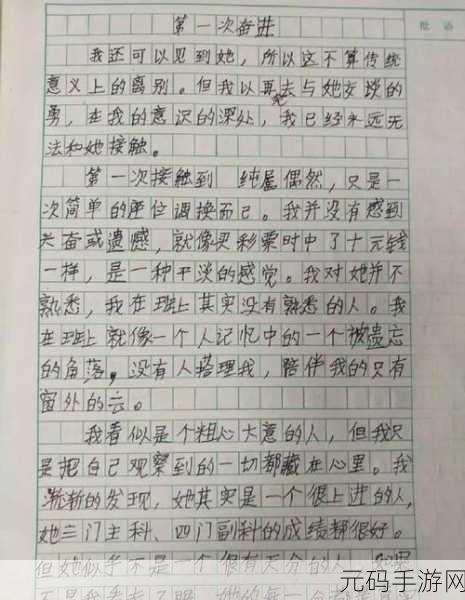 第一次奋进
批语
我还可以见到她，所以这不算传统
意义上的离别。但我以再无去与她交谈的
勇，在我的意识的深处，我已经永远无
法和她接触。
第一次接触到 纯属偶然，只是一
次简单的座位调换而已。我并没有感到
兴奋或遗憾，就像买彩票时中了十元钱
一样，是一种平淡的感觉。我对她并不
熟悉，我在班上其实没有熟悉的人。我
在班上就像一个人记忆中的一个被遗忘
的角落，没有人搭理我，陪伴我的只有
窗外的云。
我看似是个粗心大意的人，但我只
是把自己观察到的一切都藏在心里。我
渐渐的发现，她其实是一个很上进的人，
她三门主科、四门副科的成绩都很好。
但她似乎不是一个很有天分的人，如果
不是我
元码手游网